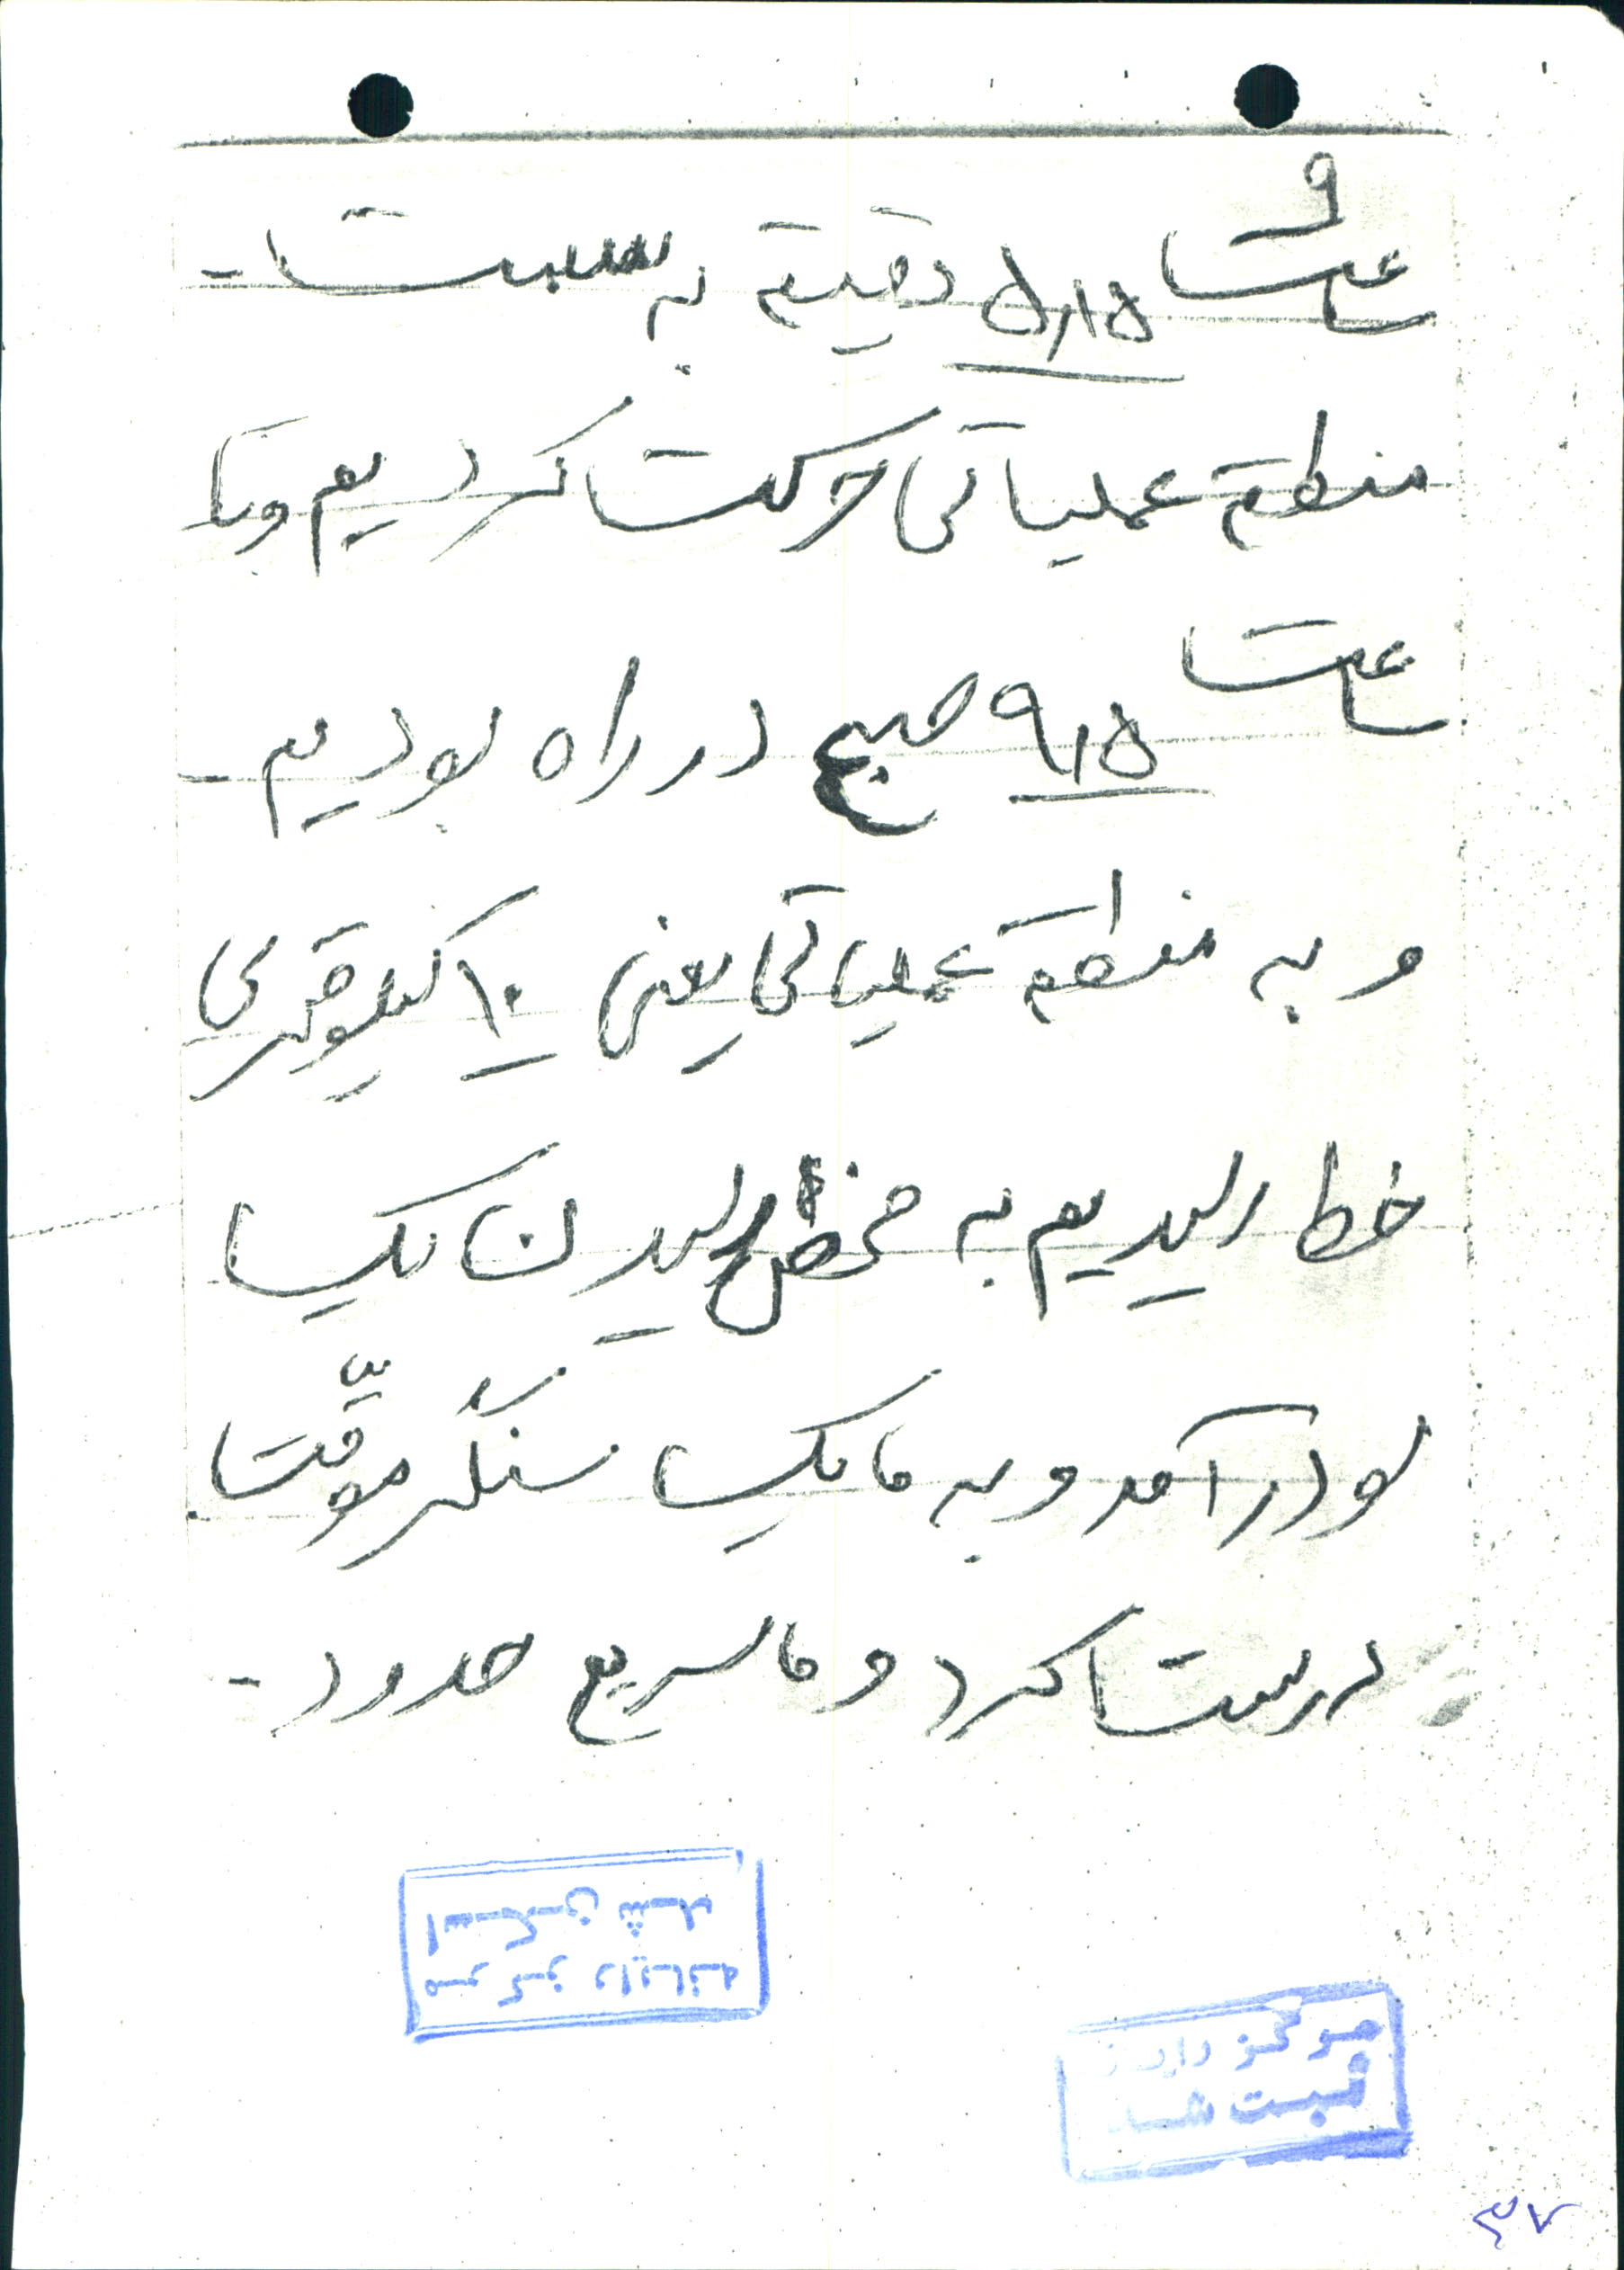 ۹
ساعت ۵٫۱۵ دقیقه به سمت -
منطقه عملیاتی حرکت کردیم و تا
ساعت ۹٫۱۵ صبح در راه بودیم -
و به منطقه عملیاتی یعنی ۱۰ کیلومتری
خط رسیدیم به محض رسیدن یک
لودر آمد و به ما یک سنگر موقت
درست کرد و ما سریع حدود -
مرکز رایانه
اسکن شد
مرکز
ثبت شد